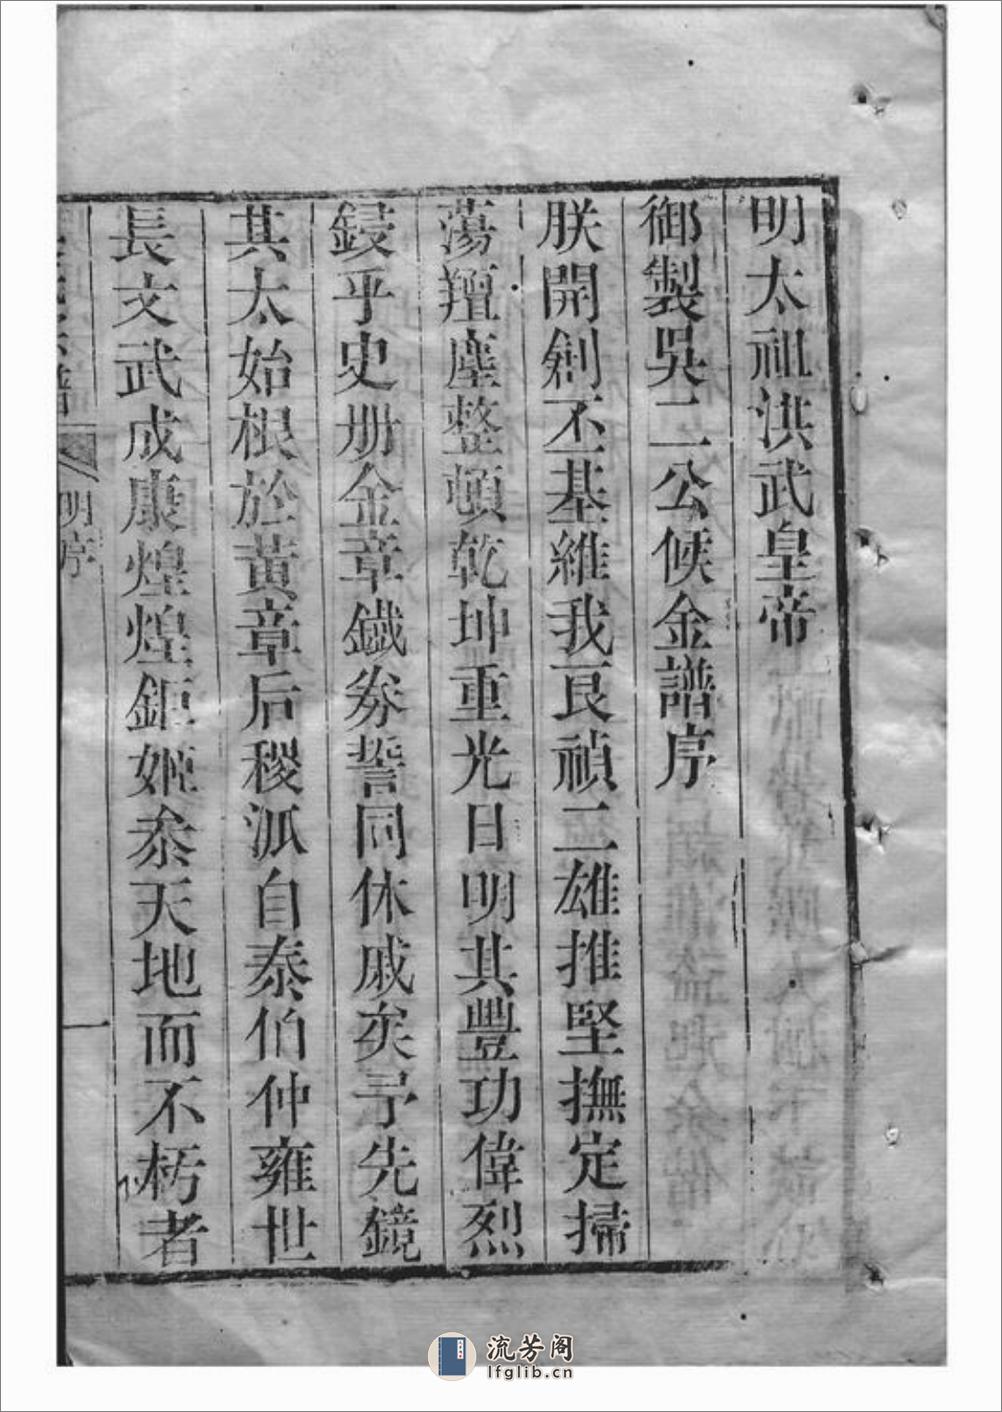 明太祖洪武皇帝
御製吳二公候金譜序
朕開創丕基維我良禎二雄推堅撫定掃
蕩羶塵整頓乾坤重光日明其豐功偉烈
鋟乎史册金章鐵券誓同休戚矣予先鏡
其太始根於黃章后稷派自泰伯仲雍世
長文武成康煌煌鉅姬叅天地而不朽者
明序
一
流芳阁
lfglib.cn